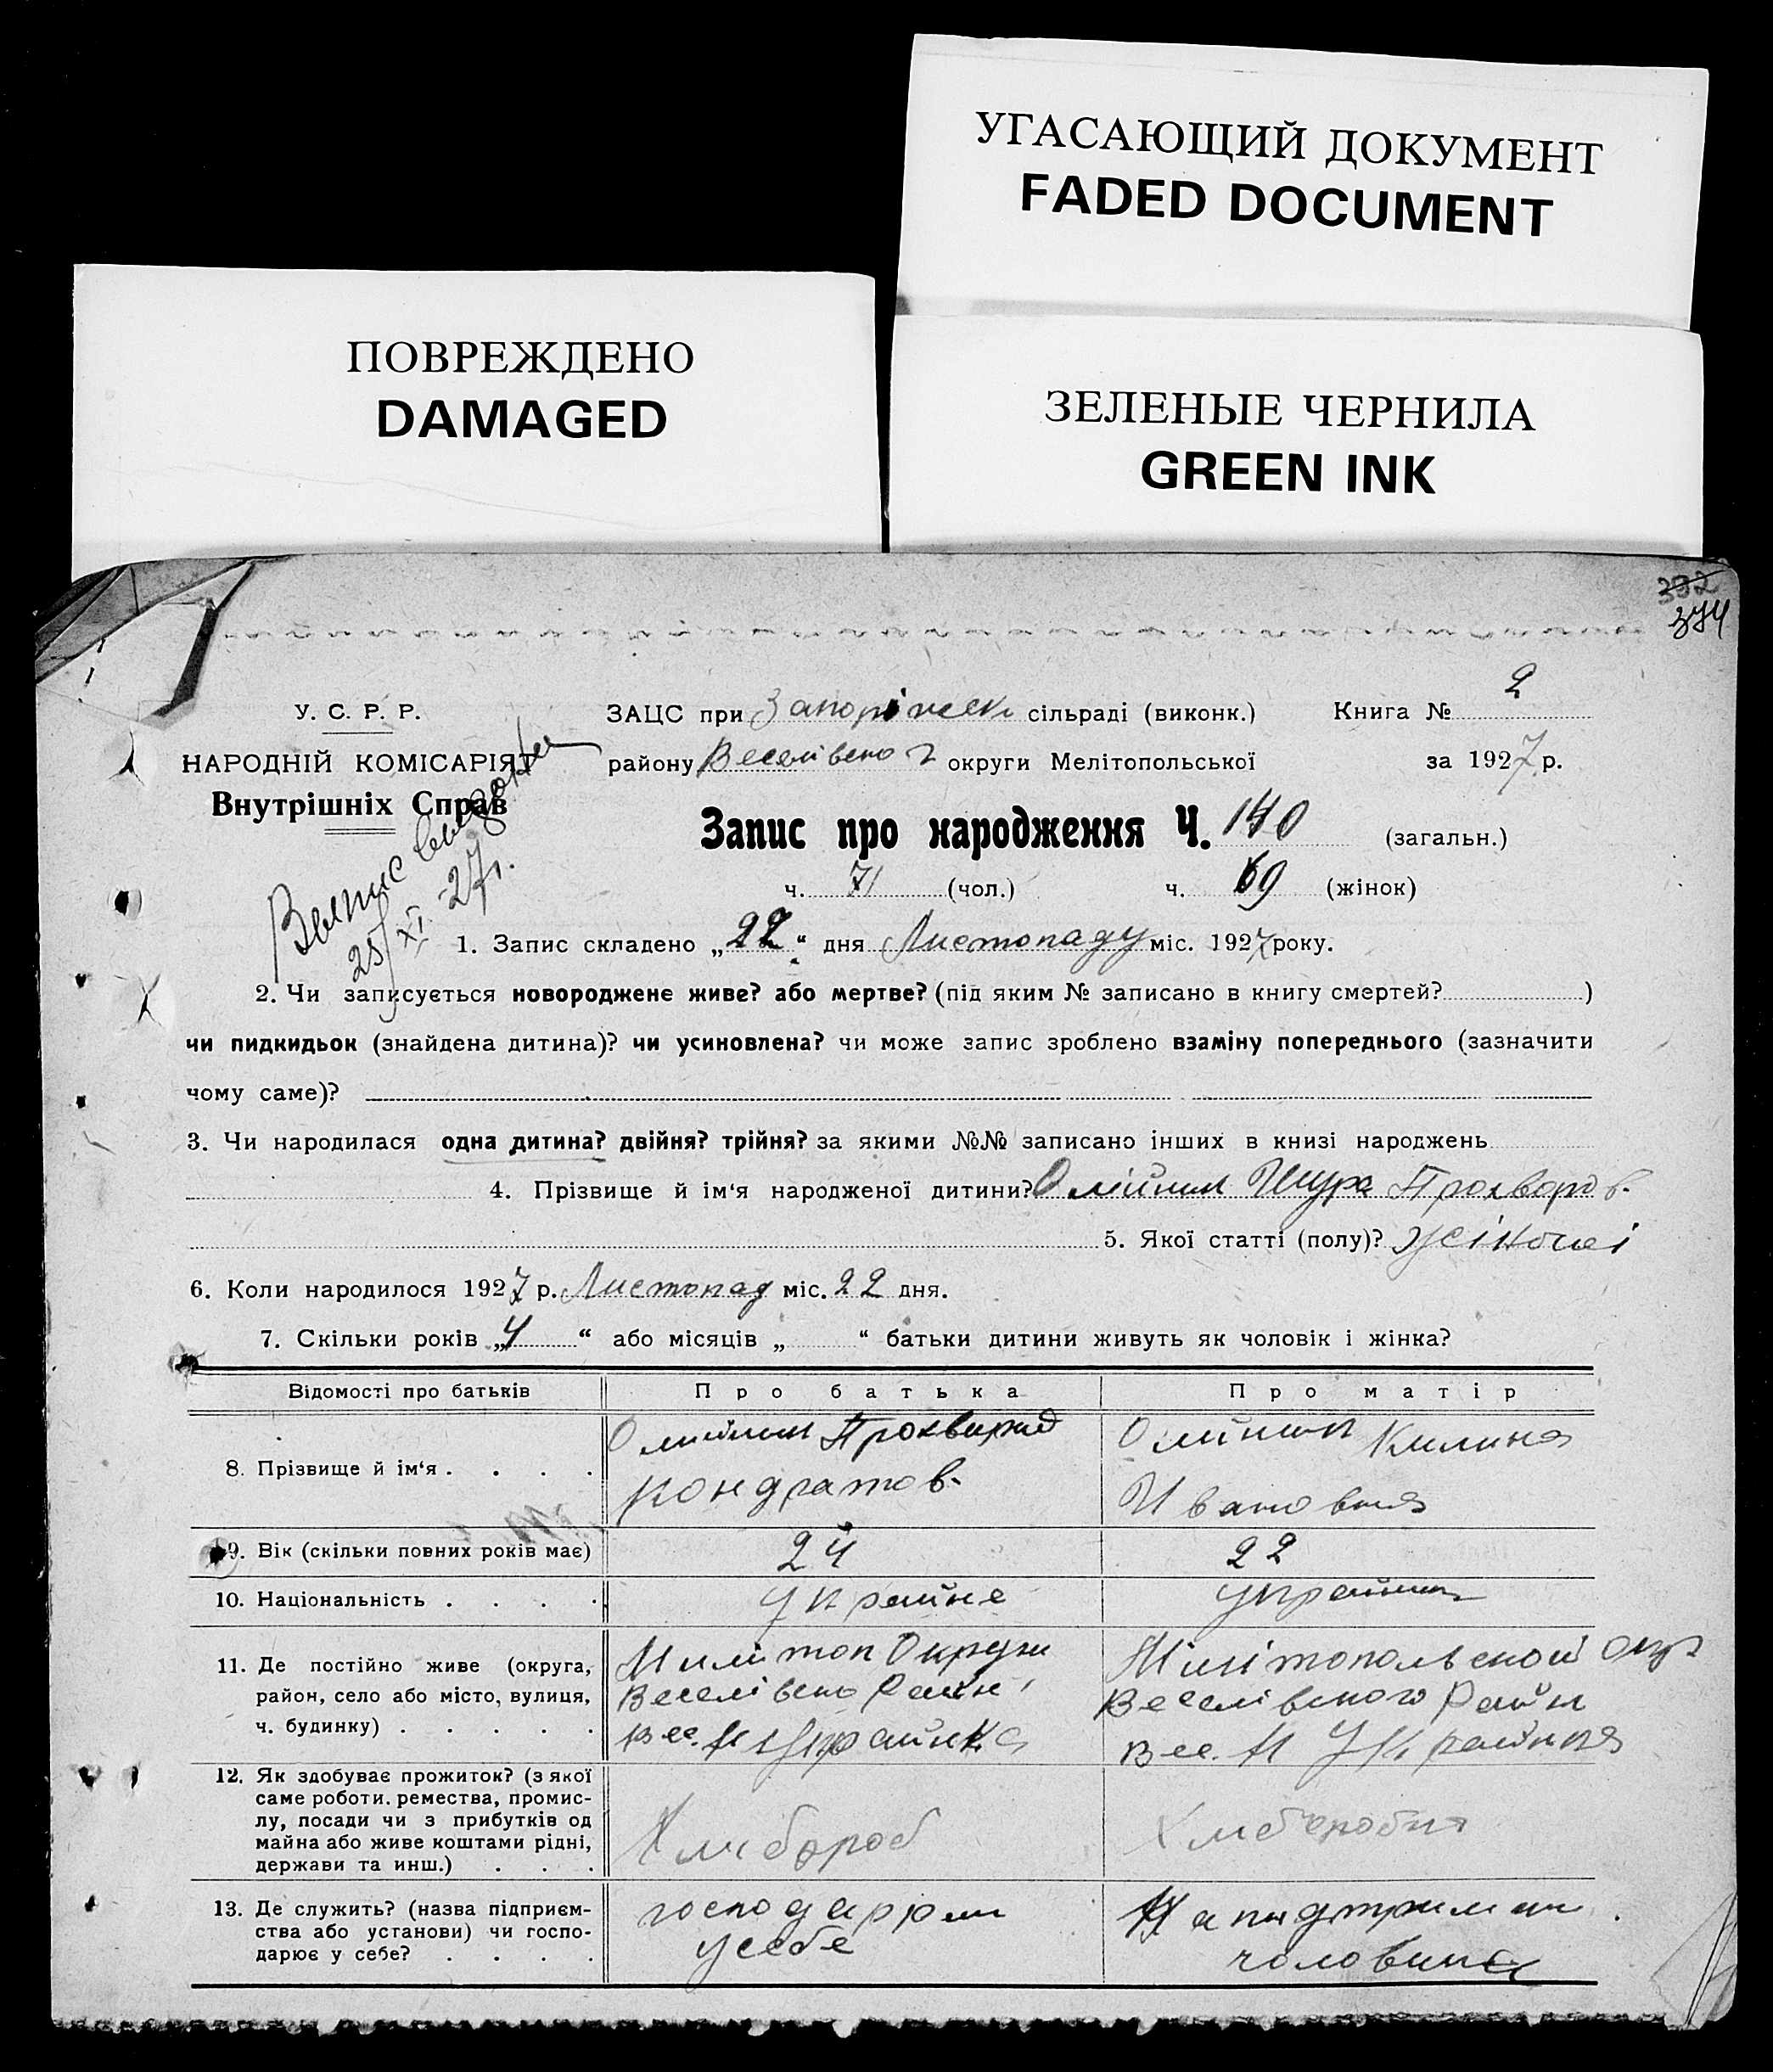 УГАСАЮЩИЙ ДОКУМЕНТ
FADED DOCUMENT
ПОВРЕЖДЕНО
DAMAGED
ЗЕЛЕНЫЕ ЧЕРНИЛА
GREEN INK
392
374
У. С. Р. Р.
НАРОДНІЙ КОМІСАРІЯТ
Внутрішніх Справ
25/XI 27г.
ЗАЦС при сільраді (виконк.) Книга № 2
району округи Мелітопольської за 1927 р.
Запис про народження Ч. 140 (загальн.)
ч. 71 (чол.) ч. 69 (жінок)
1. Запис складено „22“ дня Листопаду міс. 1927 року.
2. Чи записується новороджене живе? або мертве? (під яким № записано в книгу смертей? )
чи пидкидьок (знайдена дитина)? чи усиновлена? чи може запис зроблено взаміну попереднього (зазначити
чому саме)?
3. Чи народилася одна дитина? двійня? трійня? за якими №№ записано інших в книзі народжень
4. Прізвище й ім‘я народженої дитини? Олійник Шура
5. Якої статті (полу)? жіночої
6. Коли народилося 1927 р. Листопад міс. 22 дня.
7. Скільки років „4“ або місяців „ “ батьки дитини живуть як чоловік і жінка?
Відомості про батьків Про батька Про матір
8. Прізвище й ім‘я . . . .
Олійник
Кондратов.
Олійник Килина
Ивановна
9. Вік (скільки повних років має) 24 22
10. Національність . . . . україне
11. Де постійно живе (округа,
район, село або місто, вулиця,
ч. будинку) . . . . .
Милітоп Округи
Мілітопольской
Веселівского Район
12. Як здобуває прожиток? (з якої
саме роботи. ремества, промис-
лу, посади чи з прибутків од
майна або живе коштами рідні,
держави та инш.) . . .
Хлібороб
13. Де служить? (назва підприєм-
ства або установи) чи госпо-
дарює у себе? . . . .
усебе
чоловика